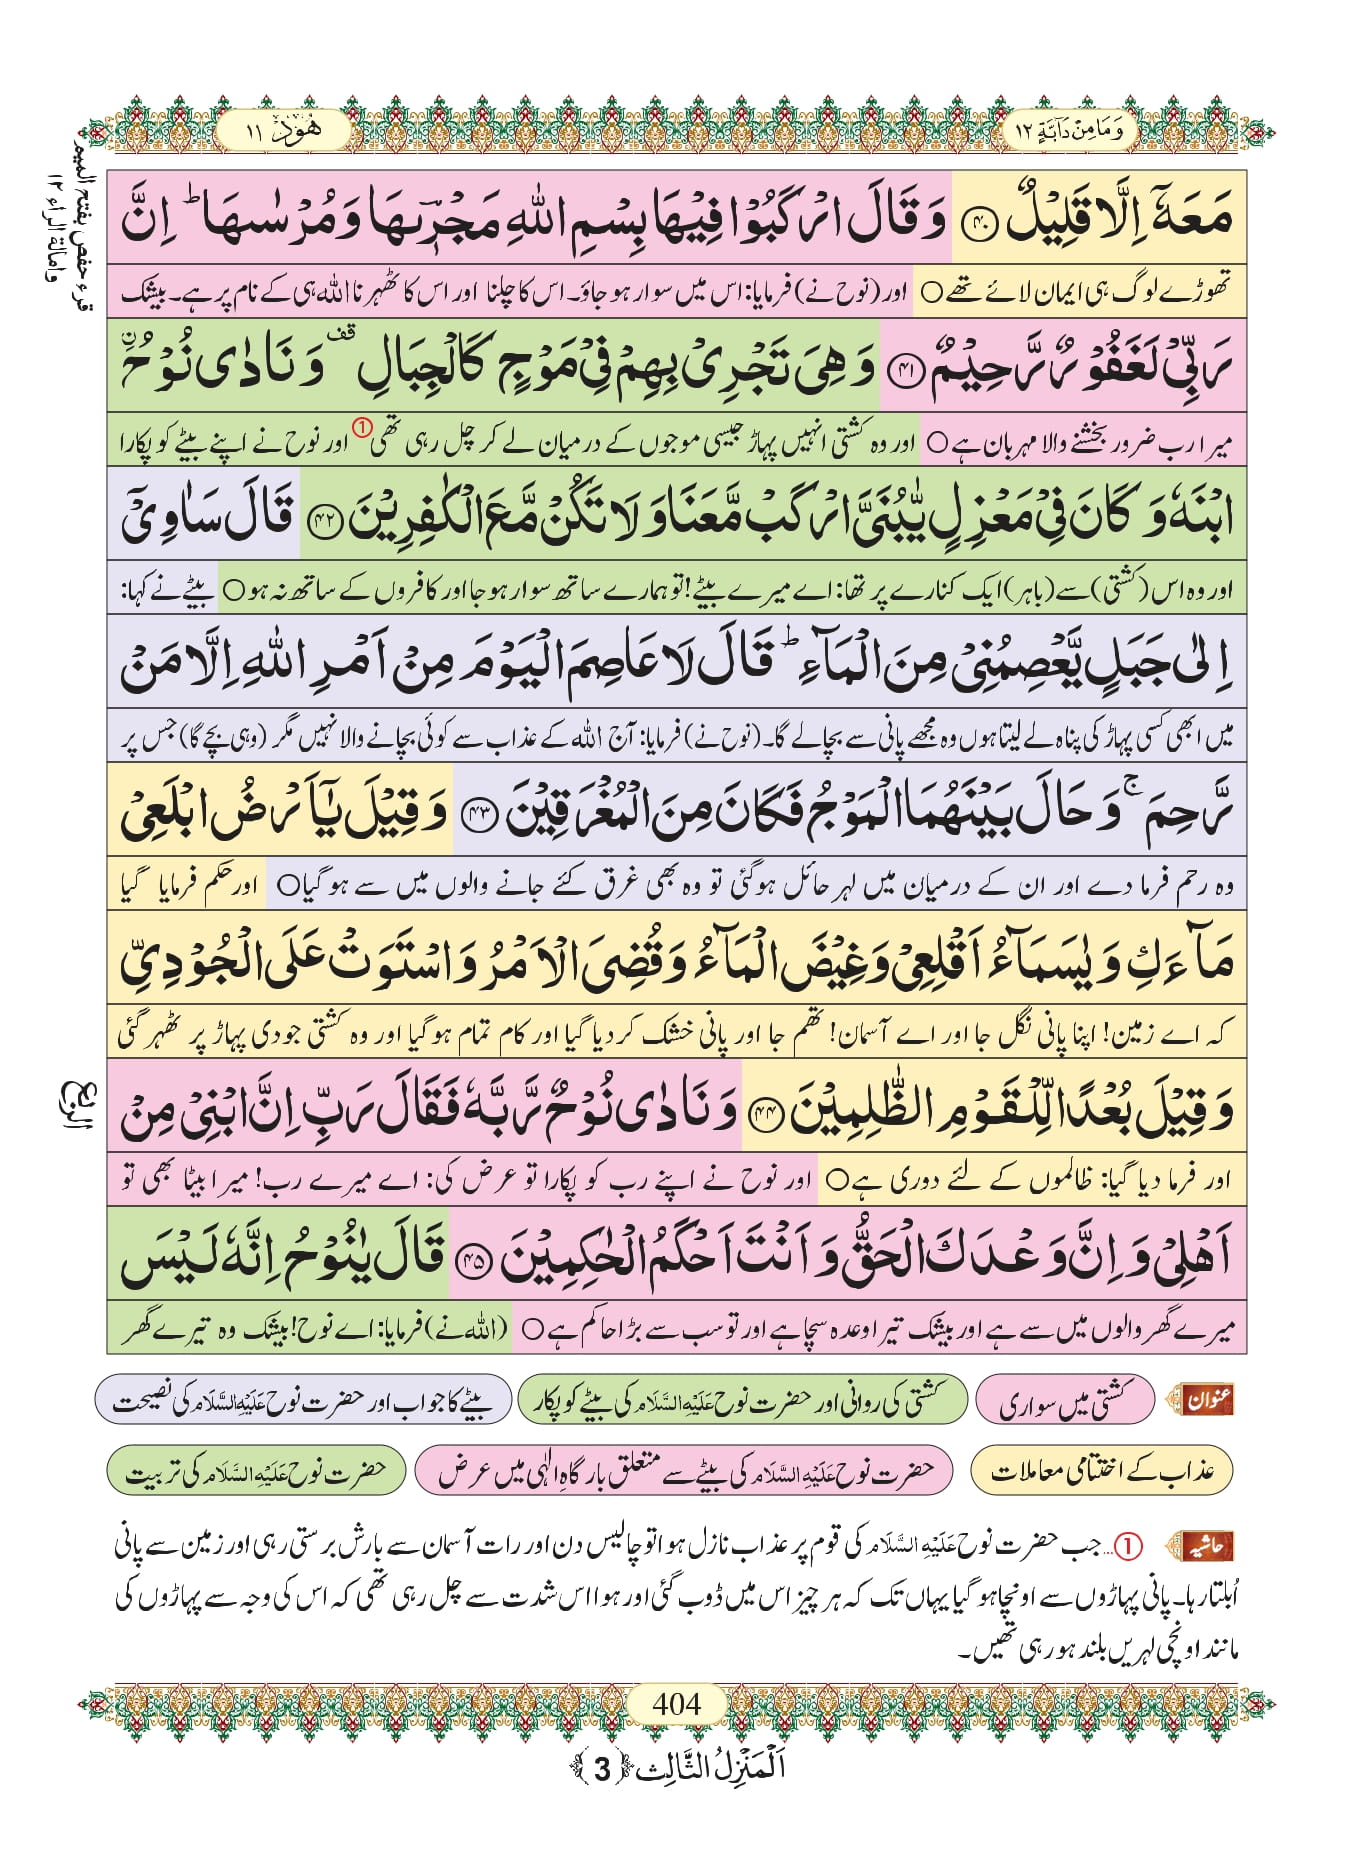 وَمَا مِنْ دَآبَّةٍ ١٢
هُوْد ١١
قرء حفص بفتح الميم
وامالة الراء ١٢
مَعَهٗۤ اِلَّا قَلِیْلٌ ﴿۴۰﴾ وَ قَالَ ارْكَبُوْا فِیْهَا بِسْمِ اللّٰهِ مَجْرٖىهَا وَ مُرْسٰىهَا ؕ اِنَّ
تھوڑے لوگ ہی ایمان لائے تھے ○ اور (نوح نے) فرمایا: اس میں سوار ہو جاؤ۔ اس کا چلنا اور اس کا ٹھہرنا اللہ ہی کے نام پر ہے۔ بیشک
رَبِّیْ لَغَفُوْرٌ رَّحِیْمٌ ﴿۴۱﴾ وَ هِیَ تَجْرِیْ بِهِمْ فِیْ مَوْجٍ كَالْجِبَالِ ۫ وَ نَادٰى نُوْحُ ﹰ
میرا رب ضرور بخشنے والا مہربان ہے ○ اور وہ کشتی انہیں پہاڑ جیسی موجوں کے درمیان لے کر چل رہی تھی ① اور نوح نے اپنے بیٹے کو پکارا
ابْنَهٗ وَ كَانَ فِیْ مَعْزِلٍ یّٰبُنَیَّ ارْكَبْ مَّعَنَا وَ لَا تَكُنْ مَّعَ الْكٰفِرِیْنَ ﴿۴۲﴾ قَالَ سَاٰوِیْۤ
اور وہ اس (کشتی) سے (باہر) ایک کنارے پر تھا: اے میرے بیٹے! تو ہمارے ساتھ سوار ہو جا اور کافروں کے ساتھ نہ ہو ○ بیٹے نے کہا:
اِلٰى جَبَلٍ یَّعْصِمُنِیْ مِنَ الْمَآءِ ؕ قَالَ لَا عَاصِمَ الْیَوْمَ مِنْ اَمْرِ اللّٰهِ اِلَّا مَنْ
میں ابھی کسی پہاڑ کی پناہ لے لیتا ہوں وہ مجھے پانی سے بچالے گا۔ (نوح نے) فرمایا: آج اللہ کے عذاب سے کوئی بچانے والا نہیں مگر (وہی بچے گا) جس پر
رَّحِمَ ۚ وَ حَالَ بَیْنَهُمَا الْمَوْجُ فَكَانَ مِنَ الْمُغْرَقِیْنَ ﴿۴۳﴾ وَ قِیْلَ یٰۤاَرْضُ ابْلَعِیْ
وہ رحم فرما دے اور ان کے درمیان میں لہر حائل ہوگئی تو وہ بھی غرق کئے جانے والوں میں سے ہو گیا ○ اور حکم فرمایا گیا
مَآءَكِ وَ یٰسَمَآءُ اَقْلِعِیْ وَ غِیْضَ الْمَآءُ وَ قُضِیَ الْاَمْرُ وَ اسْتَوَتْ عَلَى الْجُوْدِیِّ
کہ اے زمین! اپنا پانی نگل جا اور اے آسمان! تھم جا اور پانی خشک کر دیا گیا اور کام تمام ہوگیا اور وہ کشتی جودی پہاڑ پر ٹھہر گئی
الربع
وَ قِیْلَ بُعْدًا لِّلْقَوْمِ الظّٰلِمِیْنَ ﴿۴۴﴾ وَ نَادٰى نُوْحٌ رَّبَّهٗ فَقَالَ رَبِّ اِنَّ ابْنِیْ مِنْ
اور فرما دیا گیا: ظالموں کے لئے دوری ہے ○ اور نوح نے اپنے رب کو پکارا تو عرض کی: اے میرے رب! میرا بیٹا بھی تو
اَهْلِیْ وَ اِنَّ وَعْدَكَ الْحَقُّ وَ اَنْتَ اَحْكَمُ الْحٰكِمِیْنَ ﴿۴۵﴾ قَالَ یٰنُوْحُ اِنَّهٗ لَیْسَ
میرے گھر والوں میں سے ہے اور بیشک تیرا وعدہ سچا ہے اور تو سب سے بڑا حاکم ہے ○ (اللہ نے) فرمایا: اے نوح! بیشک وہ تیرے گھر
عنوان کشتی میں سواری کشتی کی روانی اور حضرت نوح عَلَیْهِ السَّلَام کی بیٹے کو پکار بیٹے کا جواب اور حضرت نوح عَلَیْهِ السَّلَام کی نصیحت
عذاب کے اختتامی معاملات حضرت نوح عَلَیْهِ السَّلَام کی بیٹے سے متعلق بارگاہِ الٰہی میں عرض حضرت نوح عَلَیْهِ السَّلَام کی تربیت
حاشیہ ①... جب حضرت نوح عَلَیْهِ السَّلَام کی قوم پر عذاب نازل ہوا تو چالیس دن اور رات آسمان سے بارش برستی رہی اور زمین سے پانی
اُبلتا رہا۔ پانی پہاڑوں سے اونچا ہو گیا یہاں تک کہ ہر چیز اس میں ڈوب گئی اور ہوا اس شدت سے چل رہی تھی کہ اس کی وجہ سے پہاڑوں کی
مانند اونچی لہریں بلند ہو رہی تھیں۔
404
اَلْمَنْزِلُ الثَّالِث ﴿3﴾